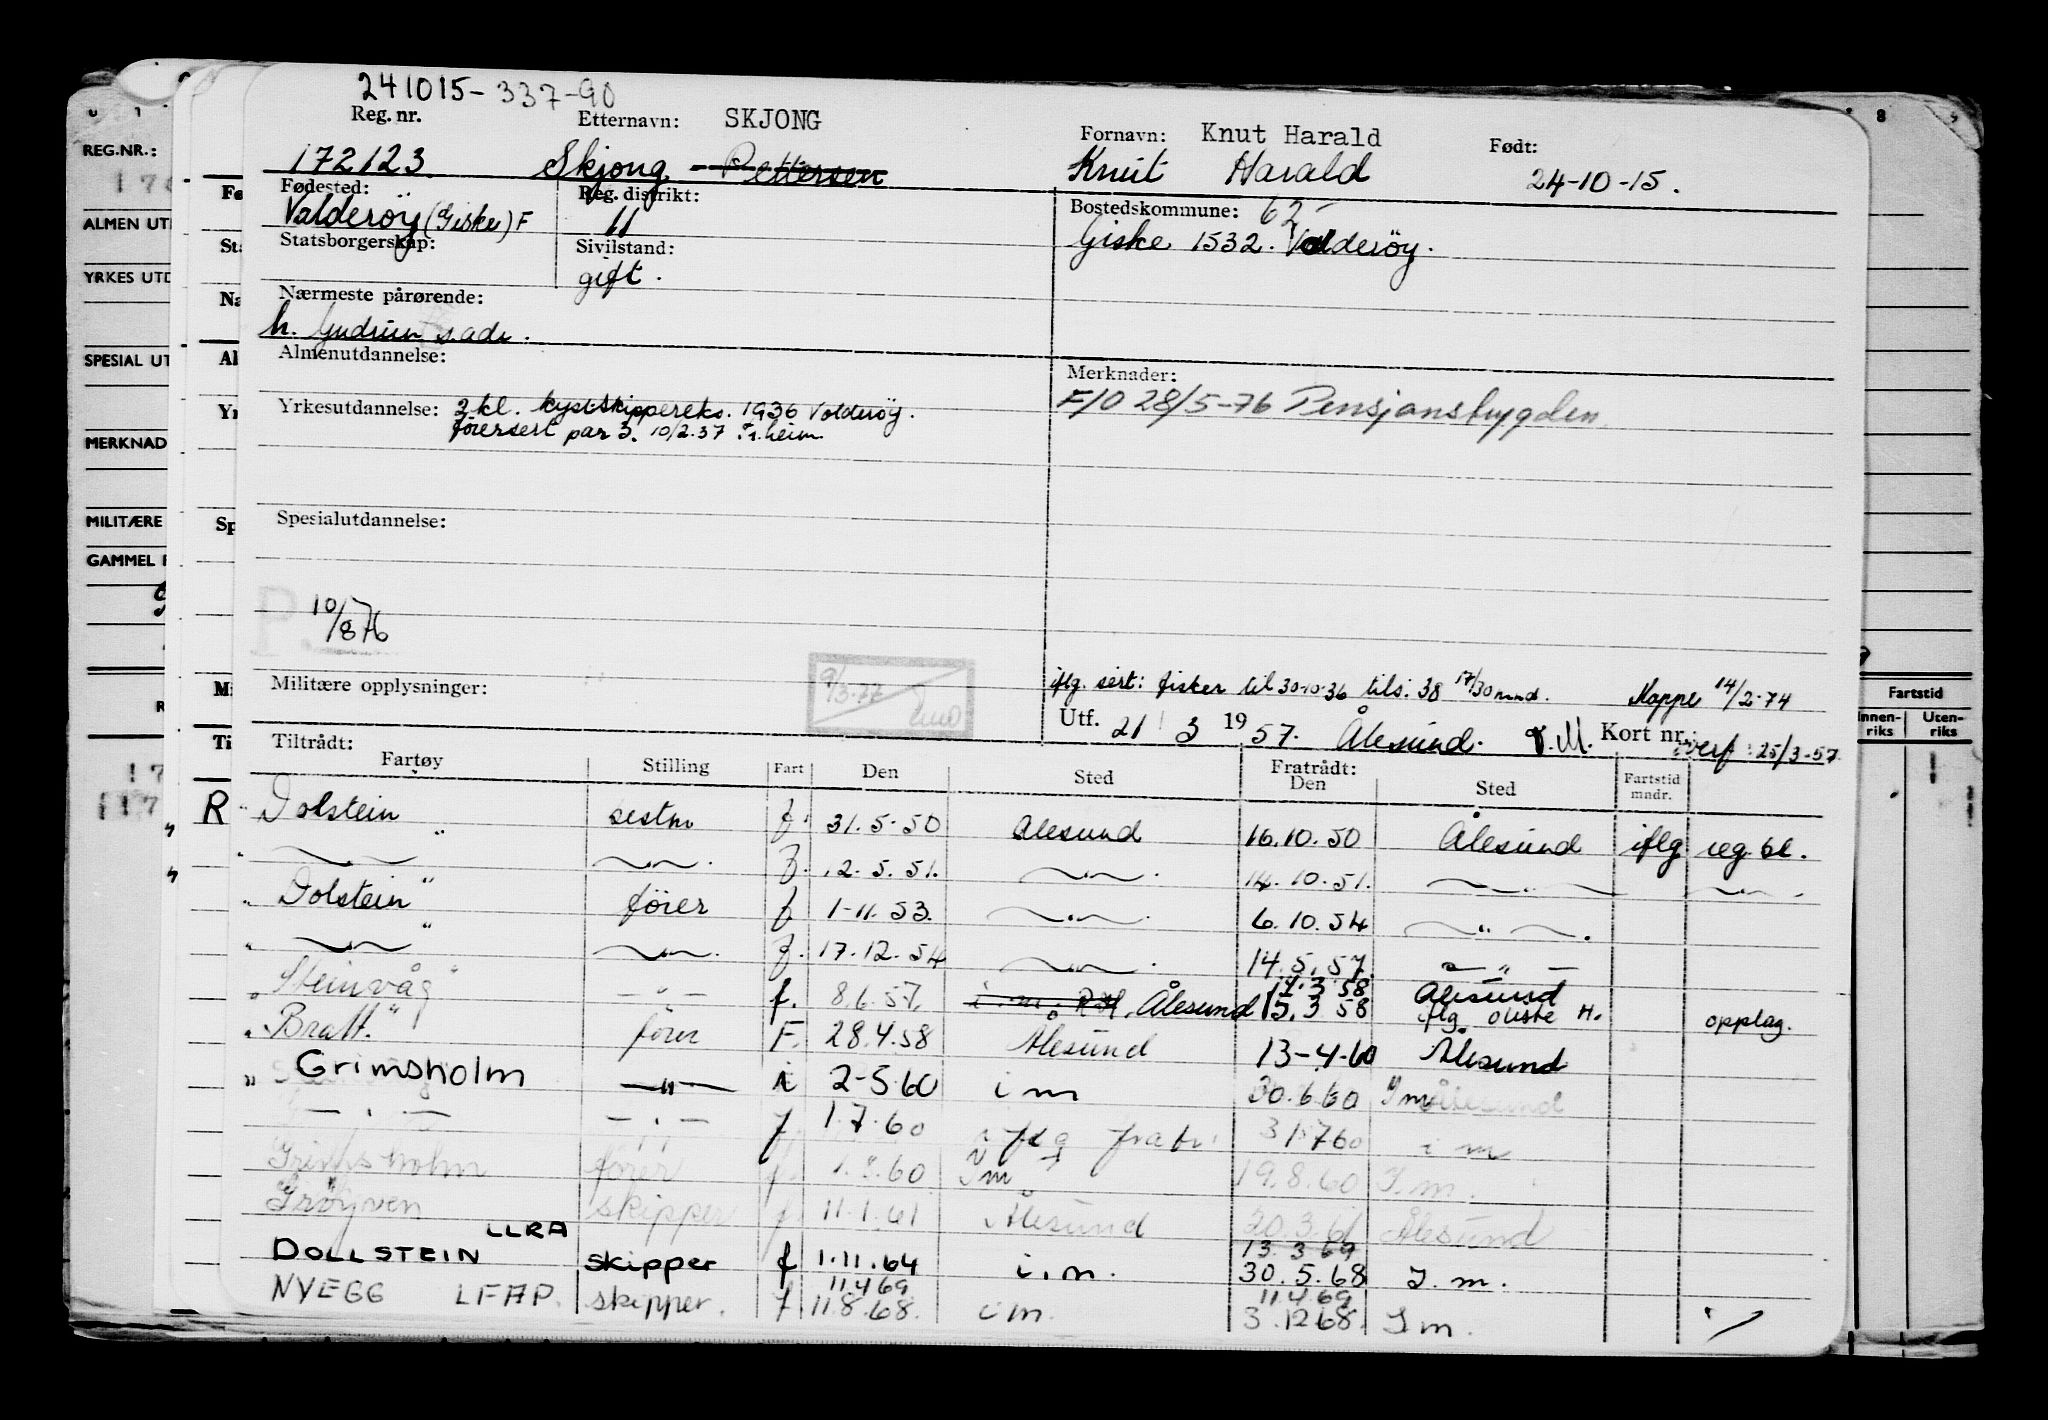 241015-337-90
Reg. nr. Etternavn: SKJONG Fornavn: Knut Harald Født:
172123 Skjong - Pettersen Knut Harald 24-10-15.
Fødested: Reg. distrikt: Bostedskommune: 62
Valderøy (Giske) F 11 Giske 1532. Valderøy.
Statsborgerskap: Sivilstand:
gift.
Nærmeste pårørende:
h. Gudrun s.adr.
Almenutdannelse: Merknader:
F/O 28/5-76 Pensjonstrygden
Yrkesutdannelse: 2 kl. kystskippereks. 1936 Valderøy.
førersert par 3. 10/2.37 Tr.heim
Spesialutdannelse:
P.
10/8 76
Militære opplysninger: 9/3-77
iflg. sert: fisker til 30-10-36 tils: 38 17/30 mnd. Mappe 14/2-74
Utf. 21/3 1957. Ålesund. V.M. Kort nr. overf 25/3-57
Tiltrådt: Fratrådt:
Fartøy Stilling Fart Den Sted Den Sted Fartstid mndr.
R "Dolstein" sestm f. 31.5.50 Ålesund 16.10.50 Ålesund iflg reg bl.
" —"— " —"— f. 12.5.51. —"— 14.10.51. —"— —"—
"Dolstein" fører f 1-11.53. —"— 6.10.54 —"—
" —"— " —"— f. 17.12.54 —"— 14.5.57. —"—
"Steinvåg" —"— f. 8.6.57. i.m. Ålesund 14.3.58 Ålesund
15.3 58 iflg. H. opplag.
"Bratt." fører F. 28.4.58 Ålesund 13-4-60 Ålesund
" Grimsholm —"— i 2-5.60 i m 30.6.60 I m
— " — — " — f 1.7.60 iflg fratr. 31 7 60 i m
Grimsholm fører f. 1.8.60 I m 19.8.60 I.m.
Frøyven skipper f. 11.1.61 Ålesund 20.3.61 Ålesund
LLRA 13.3 69
DOLLSTEIN skipper f 1.11.64 i.m. 30.5.68 I.m.
11.4 69 11.4.69
NYEGG LFAP. skipper. f 11.8.68. i m. 3.12 68. I m.
REG.NR.:
ALMEN UT
YRKES UTD
SPESIAL UT
MERKNAD
MILITÆRE
GAMMEL
Fartstid
Innen-riks Uten-riks